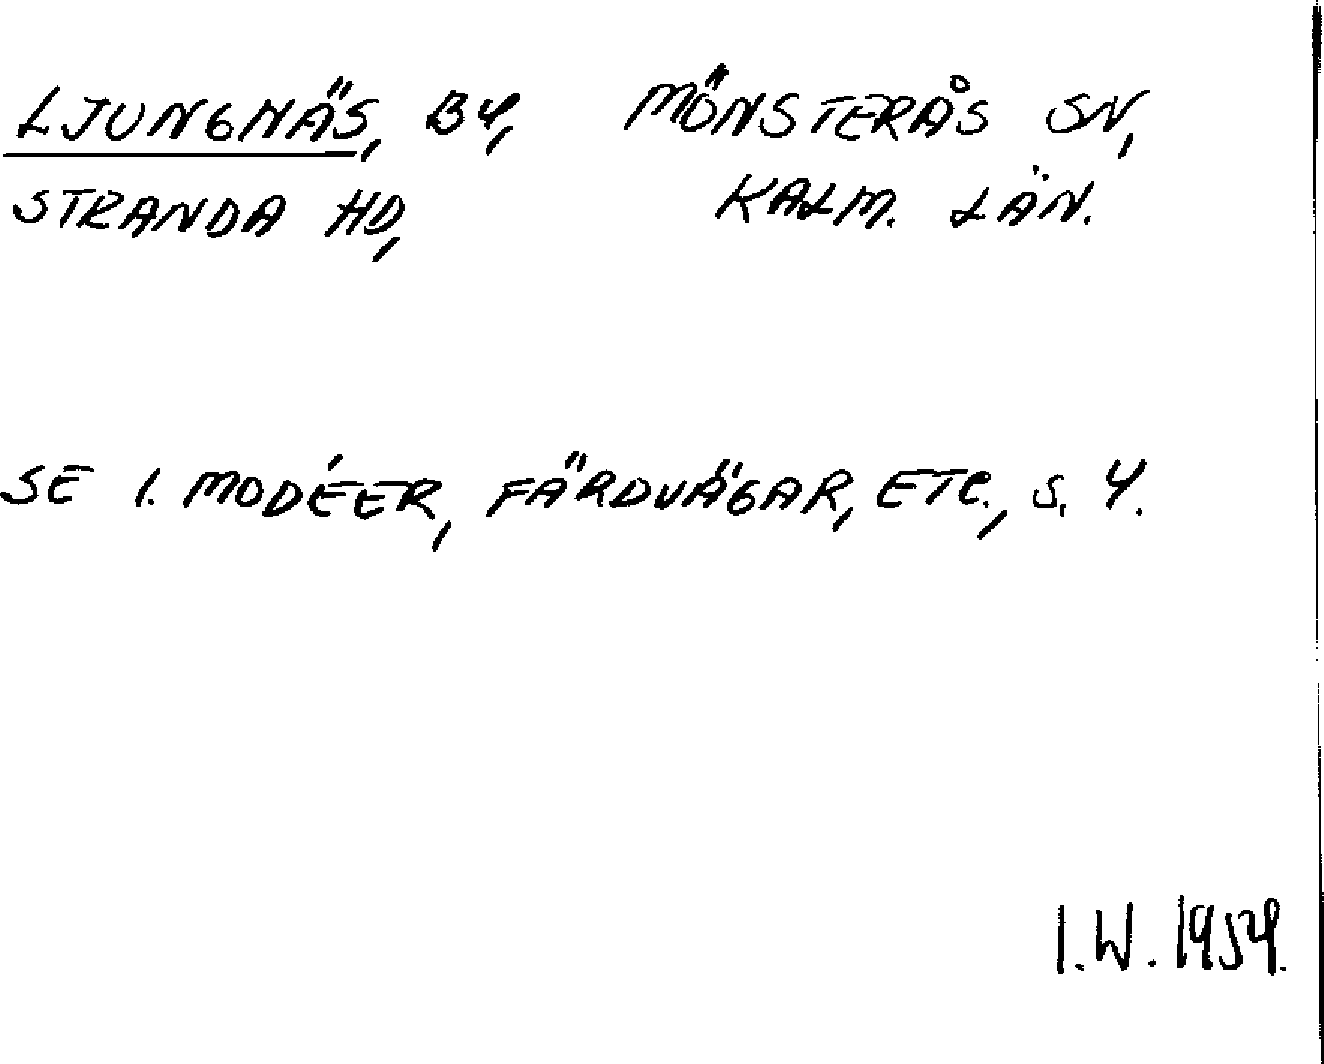 LJUNGNÄS, BY, MÖNSTERÅS SN,
STRANDA HD, KALM. LÄN.
SE I. MODÉER, FÄRDVÄGAR, ETC., S. 4.
I.W. 1954.